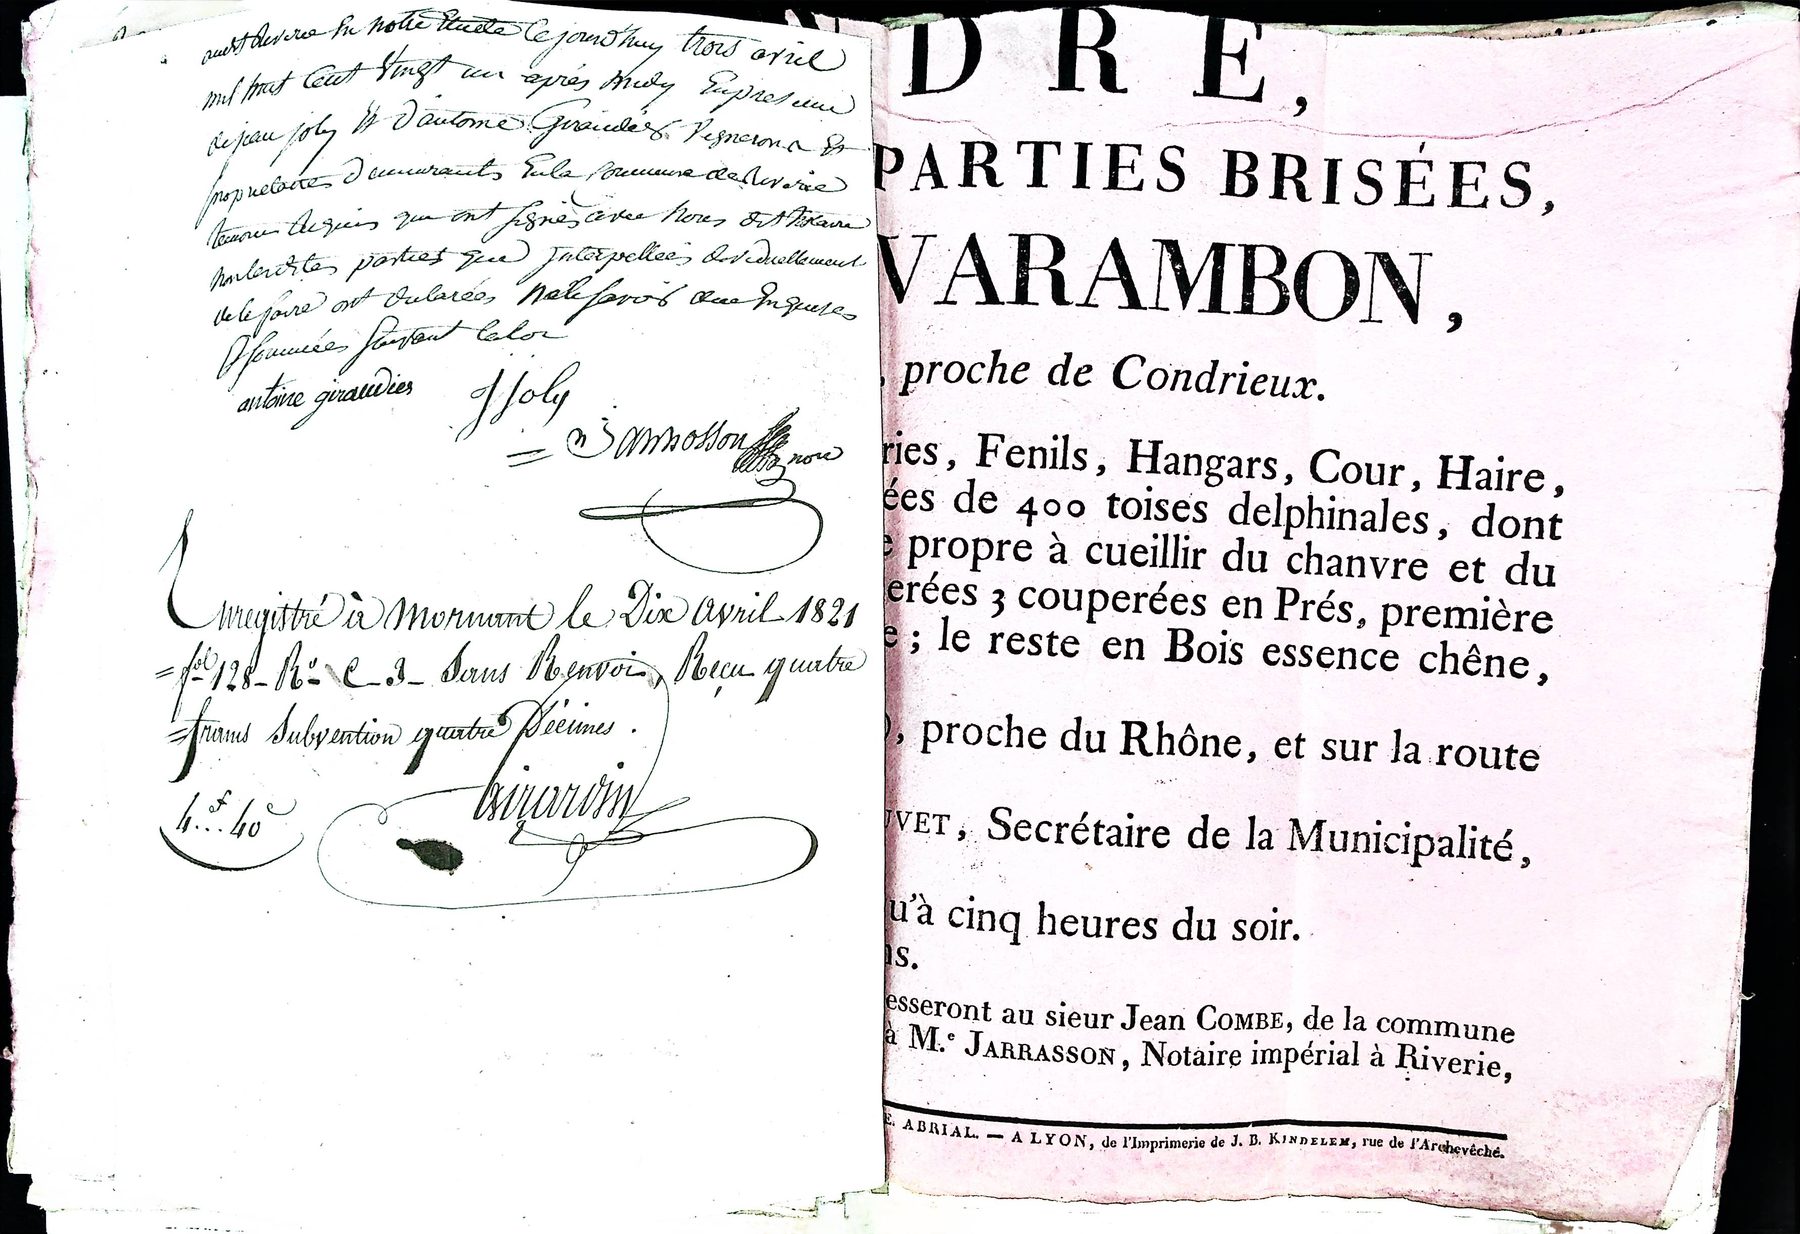 à Riverie en notre Etude le jourd'huy trois avril
mil huit Cent Vingt un après midy En presence
de jean joly Et d'antoine Giraudier Vignerons Et
proprietaires demeurants En la Commune de Riverie
temoins Requis qui ont signés avec Nous dit Notaire
non lesdites parties que interpellées individuellement
de le faire ont declarées ne le savoir de ce Enquises
& sommées suivant la loi
antoine giraudier J Joly
= Jarrosson not
Enregistré à Mornant le Dix avril 1821
= fol 128 - Ro C - 3 - Sans Renvoi, Reçu quatre
= francs Subvention quatre Décimes.
Girardin
4f... 40c
DRE,
PARTIES BRISÉES,
VARAMBON,
, proche de Condrieux.
ries, Fenils, Hangars, Cour, Haire,
ées de 400 toises delphinales, dont
e propre à cueillir du chanvre et du
erées 3 couperées en Prés, première
e ; le reste en Bois essence chêne,
), proche du Rhône, et sur la route
UVET, Secrétaire de la Municipalité,
u'à cinq heures du soir.
ns.
esseront au sieur Jean COMBE, de la commune
à M.e JARRASSON, Notaire impérial à Riverie,
E. ABRIAL. — A LYON, de l'Imprimerie de J. B. KINDELEM, rue de l'Archevêché.